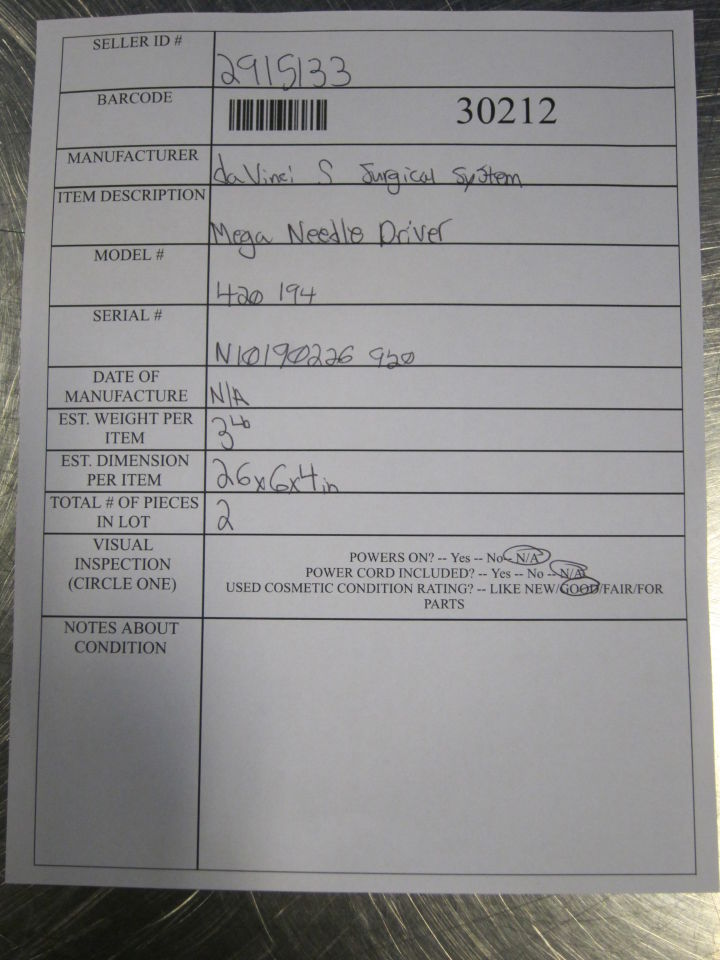 SELLER ID #
2915133
BARCODE
30212
MANUFACTURER
da Vinci S Surgical System
ITEM DESCRIPTION
Mega Needle Driver
MODEL #
420 194
SERIAL #
N10190226 920
DATE OF
MANUFACTURE
N/A
EST. WEIGHT PER
ITEM
3 lb
EST. DIMENSION
PER ITEM
26x6x4in
TOTAL # OF PIECES
IN LOT
2
VISUAL
INSPECTION
(CIRCLE ONE)
POWERS ON? -- Yes -- No -- N/A
POWER CORD INCLUDED? -- Yes -- No -- N/A
USED COSMETIC CONDITION RATING? -- LIKE NEW/GOOD/FAIR/FOR
PARTS
NOTES ABOUT
CONDITION